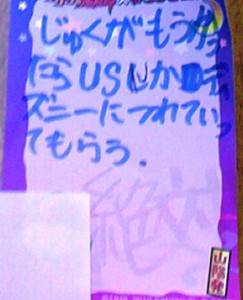 じゅくがもうかっ
たらUSJかデ
ズニーにつれていっ
てもらう.
絶対
山陰発